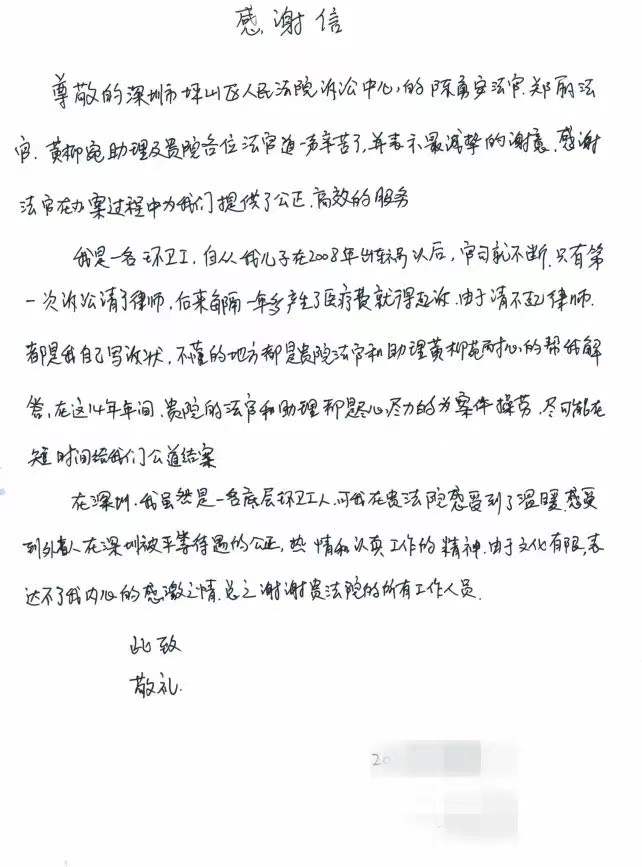 感谢信
尊敬的深圳市坪山区人民法院诉讼中心,的陈勇安法官.郑丽法
官.黄柳宛助理及贵院各位法官道一声辛苦了,并表示最诚挚的谢意.感谢
法官在办案过程中为我们提供了公正.高效的服务
我是一名环卫工,自从我儿子在2008年出车祸以后,官司就不断.只有第
一次诉讼请了律师,后来每隔一年多产生了医疗费就得起诉.由于请不起律师.
都是我自己写诉状,不懂的地方都是贵院法官和助理黄柳宛耐心的帮我解
答,在这14年年间.贵院的法官和助理都是尽心尽力的为案件操劳,尽可能在
短时间给我们公道结案
在深圳.我虽然是一名底层环卫工人.可我在贵法院感受到了温暖.感受
到外省人在深圳被平等待遇的公正,热情和认真工作的精神.由于文化有限,表
达不了我内心的感激之情.总之谢谢贵法院的所有工作人员.
此致
敬礼.
20